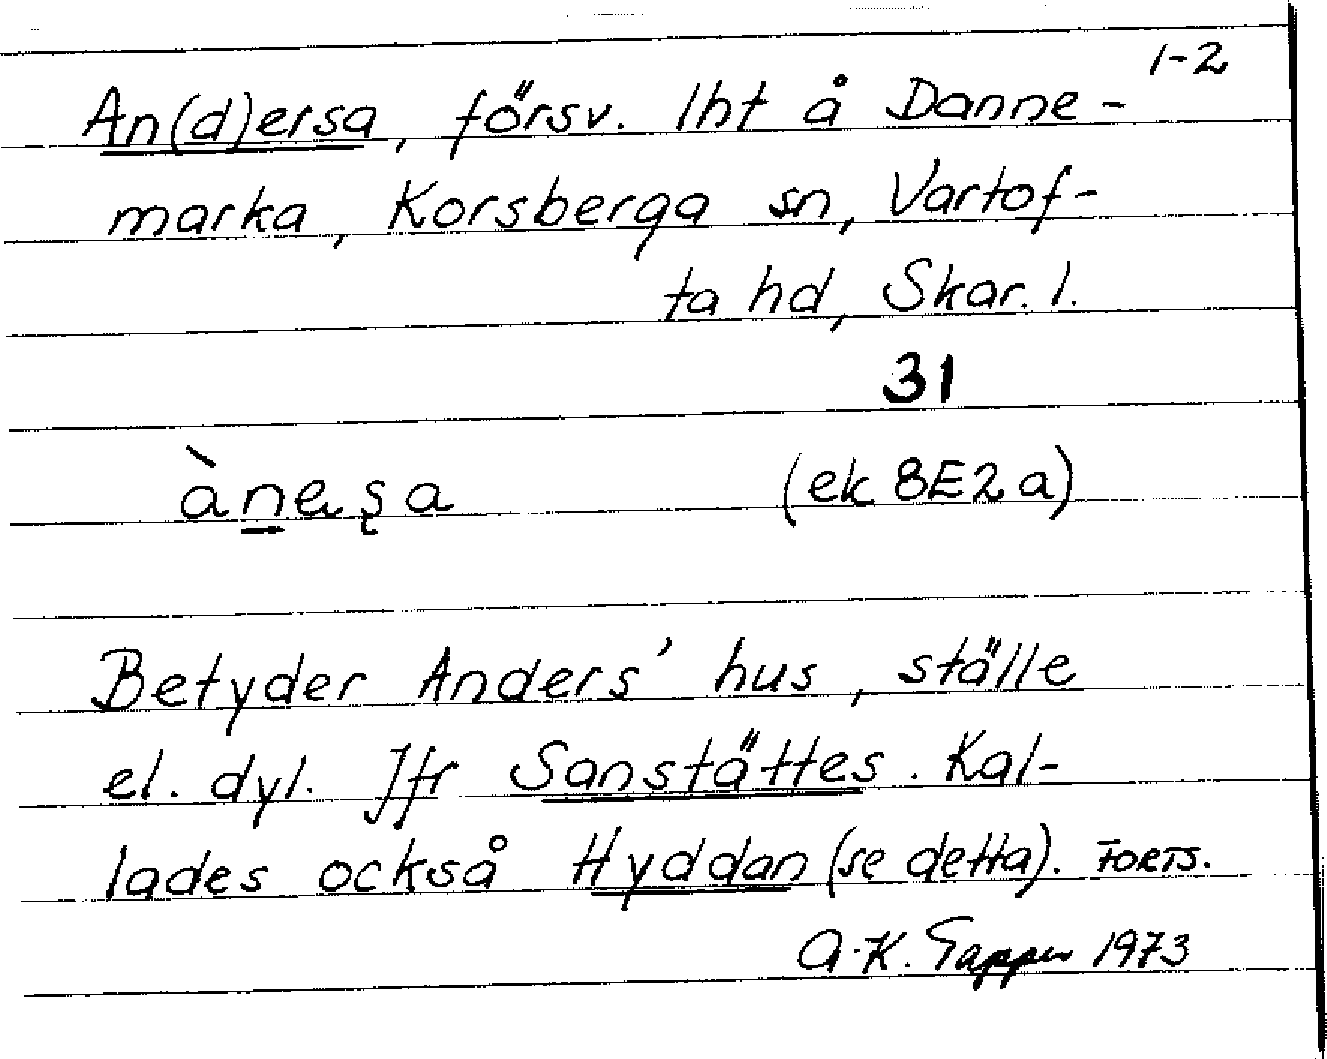 1-2
An(d)ersa, försv. lht å Danne-
marka, Korsberga sn, Vartof-
ta hd, Skar. l.
31
àneʂa (ek 8E2a)
Betyder Anders' hus, ställe
el. dyl. Jfr Sanstättes. Kal-
lades också Hyddan (se detta). FORTS.
A-K. Tapper 1973